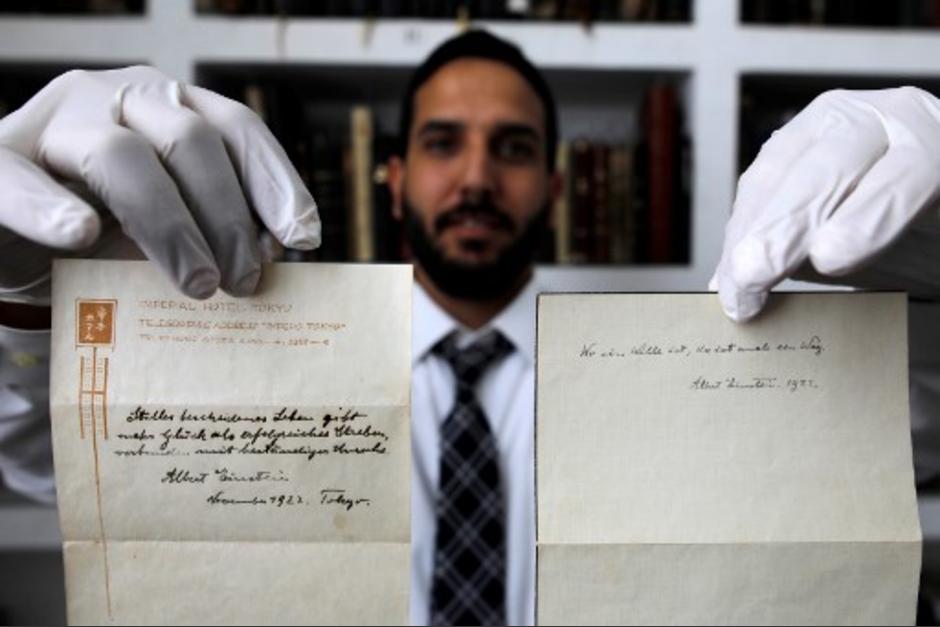 IMPERIAL HOTEL TOKYO
TELEGRAPHIC ADDRESS "IMPEHO TOKYO"
TELEPHONE GINZA
Stilles bescheidenes Leben gibt
mehr Glück als erfolgreiches Streben,
verbunden mit beständiger Unruhe.
Albert Einstein
November 1922. Tokyo.
Wo ein Wille ist, da ist auch ein Weg.
Albert Einstein. 1922.